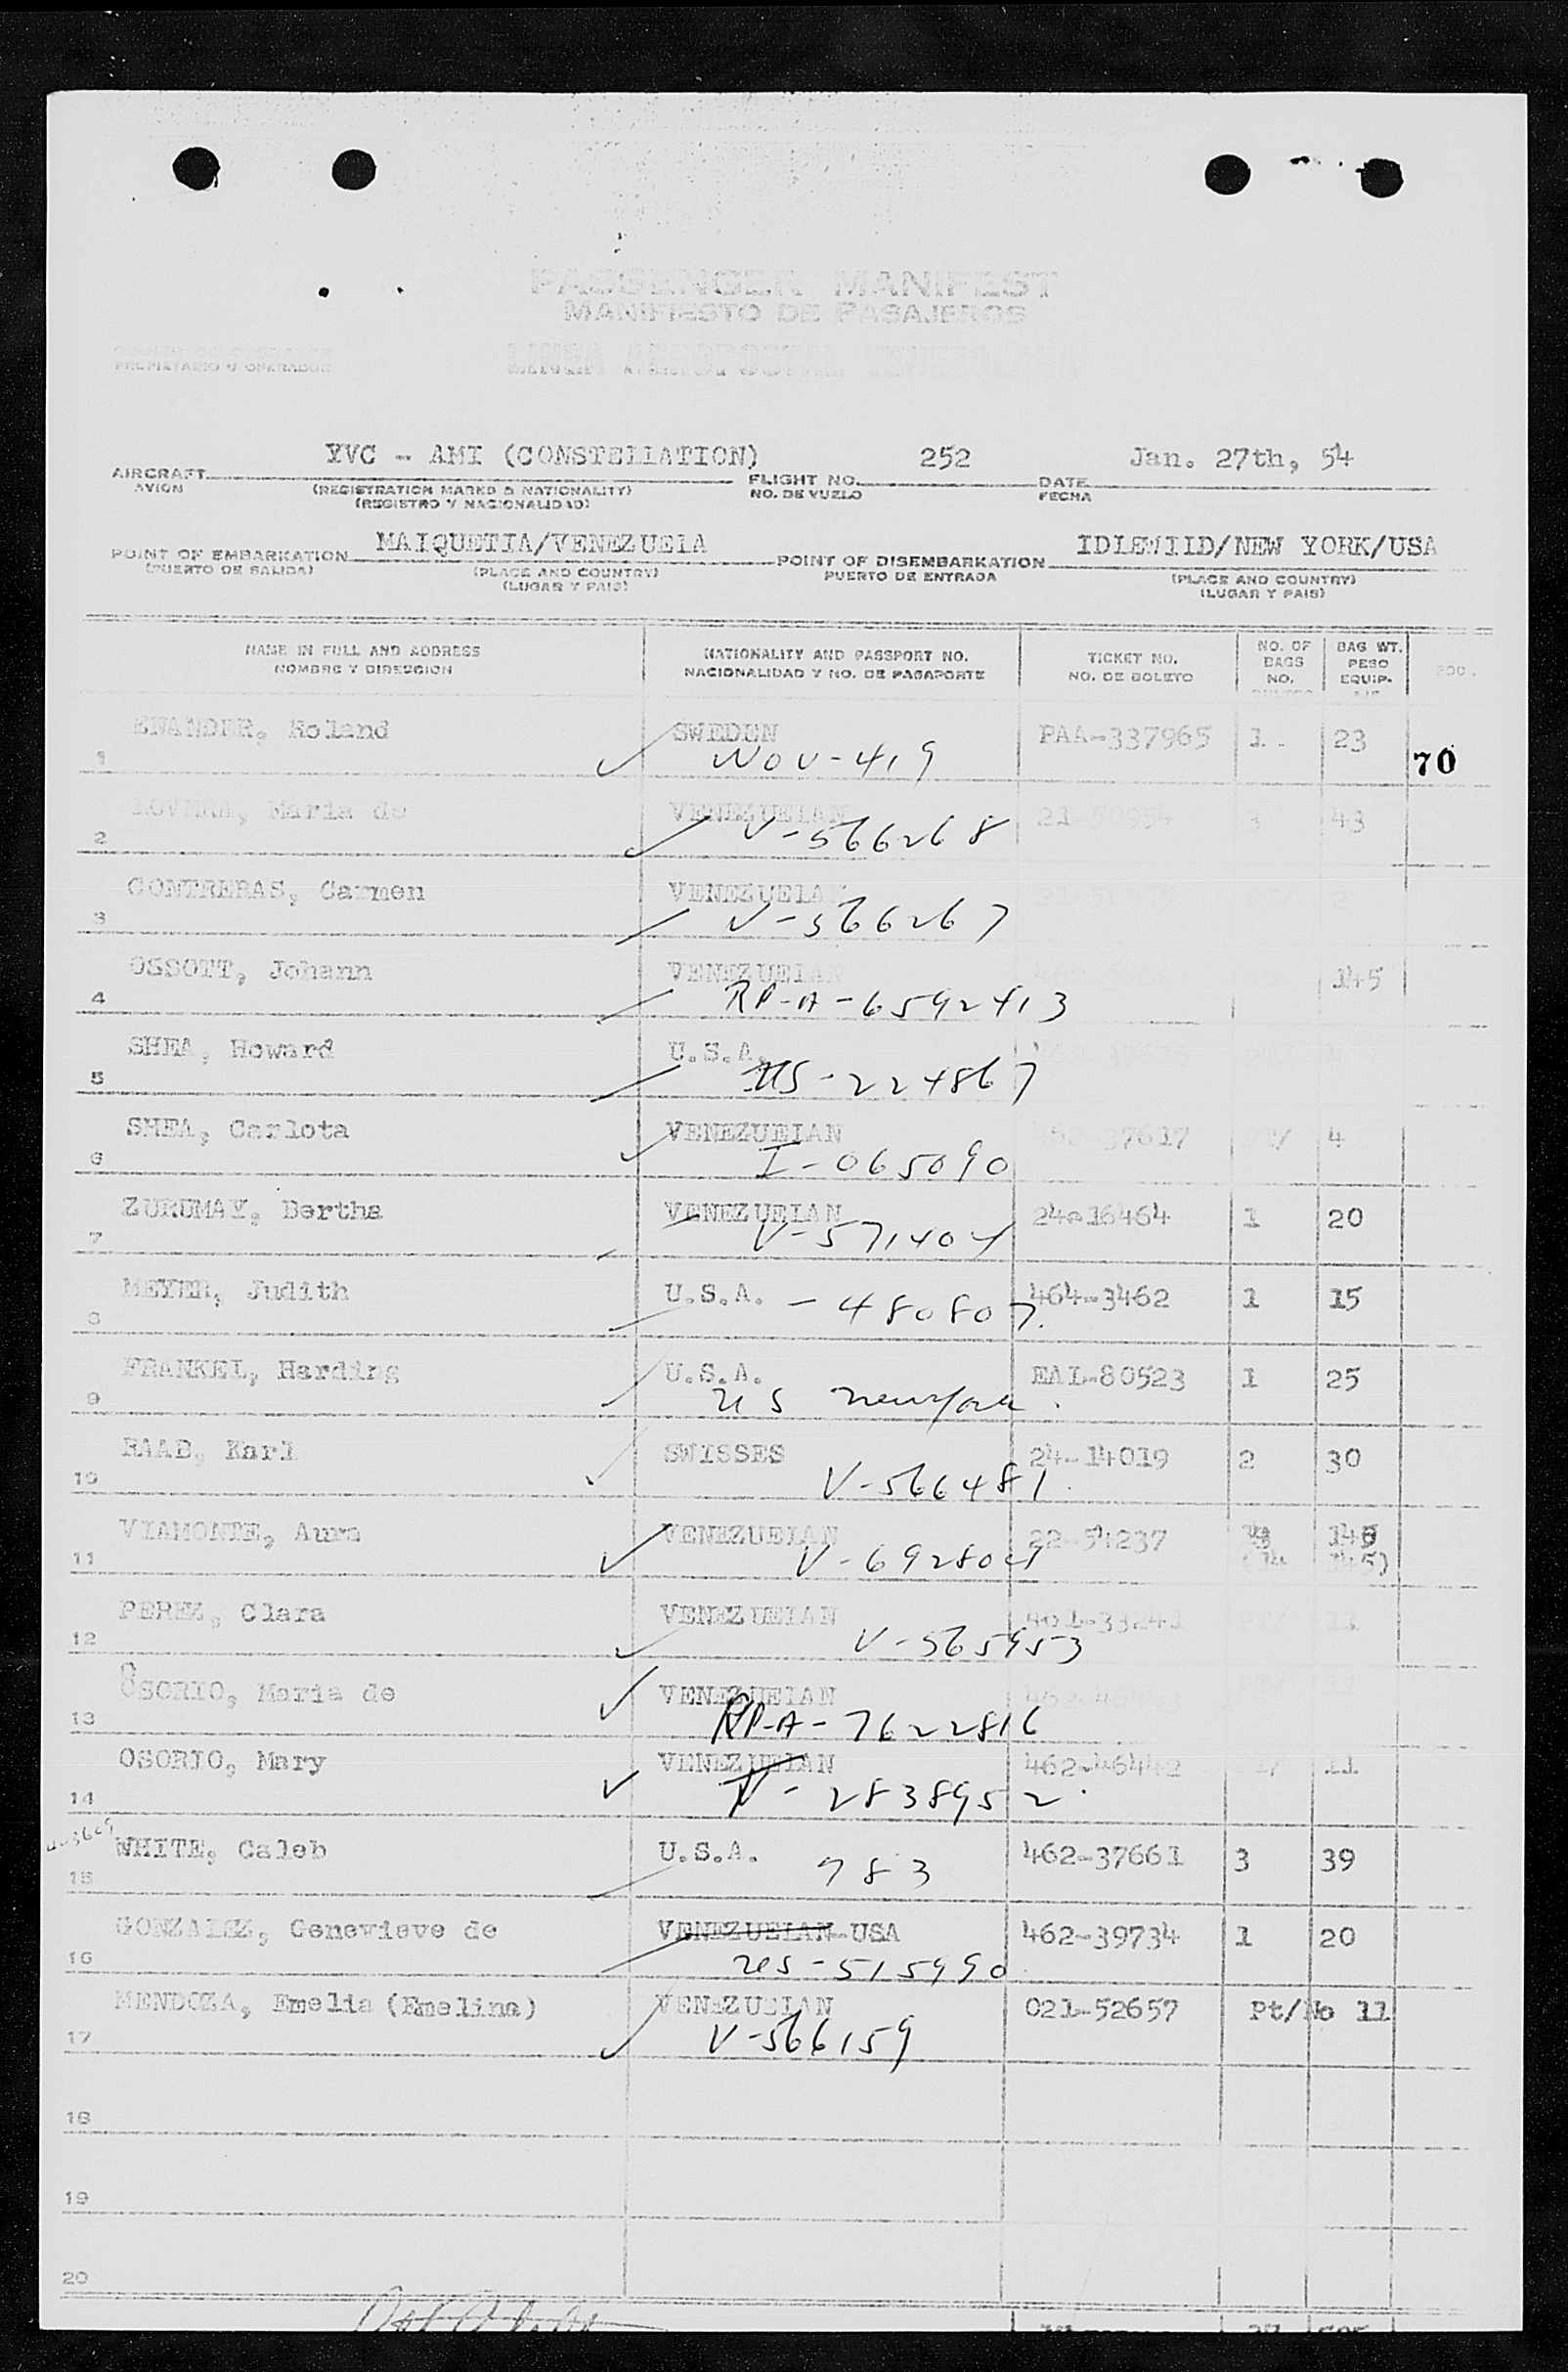 PASSENGER MANIFEST
MANIFIESTO DE PASAJEROS
LINEA AEROPOSTAL VENEZOLANA
PROPIETARIO U OPERADOR
YVC - AMI (CONSTELLATION) 252 Jan. 27th, 54
AIRCRAFT FLIGHT NO. DATE
AVION (REGISTRATION MARKS & NATIONALITY) NO. DE VUELO FECHA
(REGISTRO Y NACIONALIDAD)
MAIQUETIA/VENEZUELA IDLEWILD/NEW YORK/USA
POINT OF EMBARKATION POINT OF DISEMBARKATION
(PUERTO DE SALIDA) (PLACE AND COUNTRY) PUERTO DE ENTRADA (PLACE AND COUNTRY)
(LUGAR Y PAIS) (LUGAR Y PAIS)
NAME IN FULL AND ADDRESS NATIONALITY AND PASSPORT NO. TICKET NO. NO. OF BAGS BAG WT.
NOMBRE Y DIRECCION NACIONALIDAD Y NO. DE PASAPORTE NO. DE BOLETO NO. PESO EQUIP-
ENANDER, Roland SWEDEN PAA-337965 1 23
1 WOU-419 70
Maria de VENEZUELAN 43
2 V-566268
CONTRERAS, Carmen VENEZUELAN 2
3 V-566267
OSSOTT, Johann VENEZUELAN 145
4 RP-A-6592413
SHEA, Howard U.S.A.
5 US-224867
SHEA, Carlota VENEZUELAN 37617 4
6 I-065090
ZURUMAY, Bertha VENEZUELAN 24-16464 1 20
7 V-571404
MEYER, Judith U.S.A. - 480807 464-3462 1 15
8
FRANKEL, Harding U.S.A. EAL-80523 1 25
9 US newyork.
RAAB, Karl SWISSES 24-14019 2 30
10 V-566481.
VIAMONTE, Aura VENEZUELAN 22-54237
11 V-692804
PEREZ, Clara VENEZUELAN 461-33241 11
12 V-565953
OSORIO, Maria de VENEZUELAN
13 RP-A-7622816
OSORIO, Mary VENEZUELAN 11
14 V-2838952.
WHITE, Caleb U.S.A. 783 462-37661 3 39
15
GONZALEZ, Genevieve de VENEZUELAN-USA 462-39734 1 20
16 US-515990
MENDOZA, Emelia (Emelina) VENEZUELAN 021-52657 Pt/No 11
17 V-566159
18
19
20